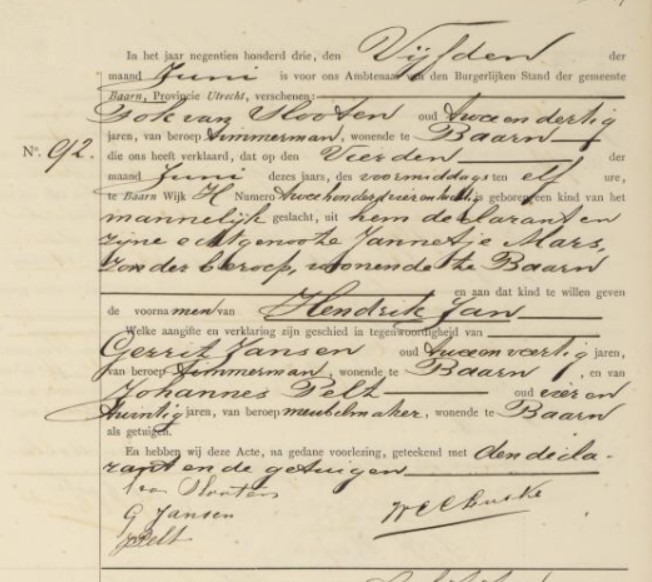 In het jaar negentien honderd drie, den Vijfden der
maand Juni is voor ons Ambtenaar van den Burgerlijken Stand der gemeente
Baarn, Provincie Utrecht, verschenen:
van Slooten oud twee en dertig
jaren, van beroep timmerman, wonende te Baarn
No. 92.
die ons heeft verklaard, dat op den Vierden der
maand Juni dezes jaars, des voormiddags ten elf ure,
te Baarn Wijk H Numero twee honderd vier en is geboren een kind van het
mannelijk geslacht, uit hem declarant en
zijne echtgenoote Jannetje Mars,
zonder beroep, wonende te Baarn
en aan dat kind te willen geven
de voornamen van Hendrik Jan
Welke aangifte en verklaring zijn geschied in tegenwoordigheid van
Gerrit Jansen oud twee en veertig jaren,
van beroep timmerman, wonende te Baarn, en van
Johannes Pelt oud vier en
twintig jaren, van beroep meubelmaker, wonende te Baarn
als getuigen.
En hebben wij deze Acte, na gedane voorlezing, geteekend met den decla-
rant en de getuigen
van Slooten
G Jansen
J Pelt